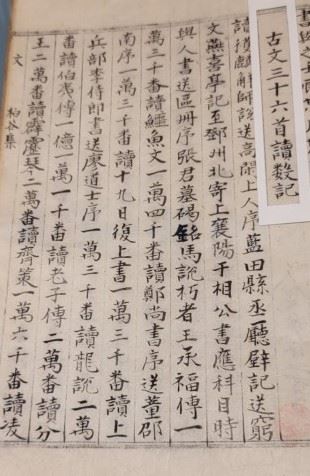 古文三十六首讀數記
讀獲麟解師說送高閑上人序藍田縣丞廳壁記送窮
文燕喜亭記至鄧州北寄上襄陽于相公書應科目時
與人書送區冊序張君墓碣銘馬說朽者王承福傳一
萬三千番讀鱷魚文一萬四千番讀鄭尚書序送董邵
南序一萬三千番讀十九日復上書一萬三千番讀上
兵部李侍郎書送廖道士序一萬三千番讀龍說二萬
番讀伯夷傳一億一萬一千番讀老子傳二萬番讀分
王二萬番讀霹靂琴二萬番讀齊策一萬六千番讀凌
文 柏谷集